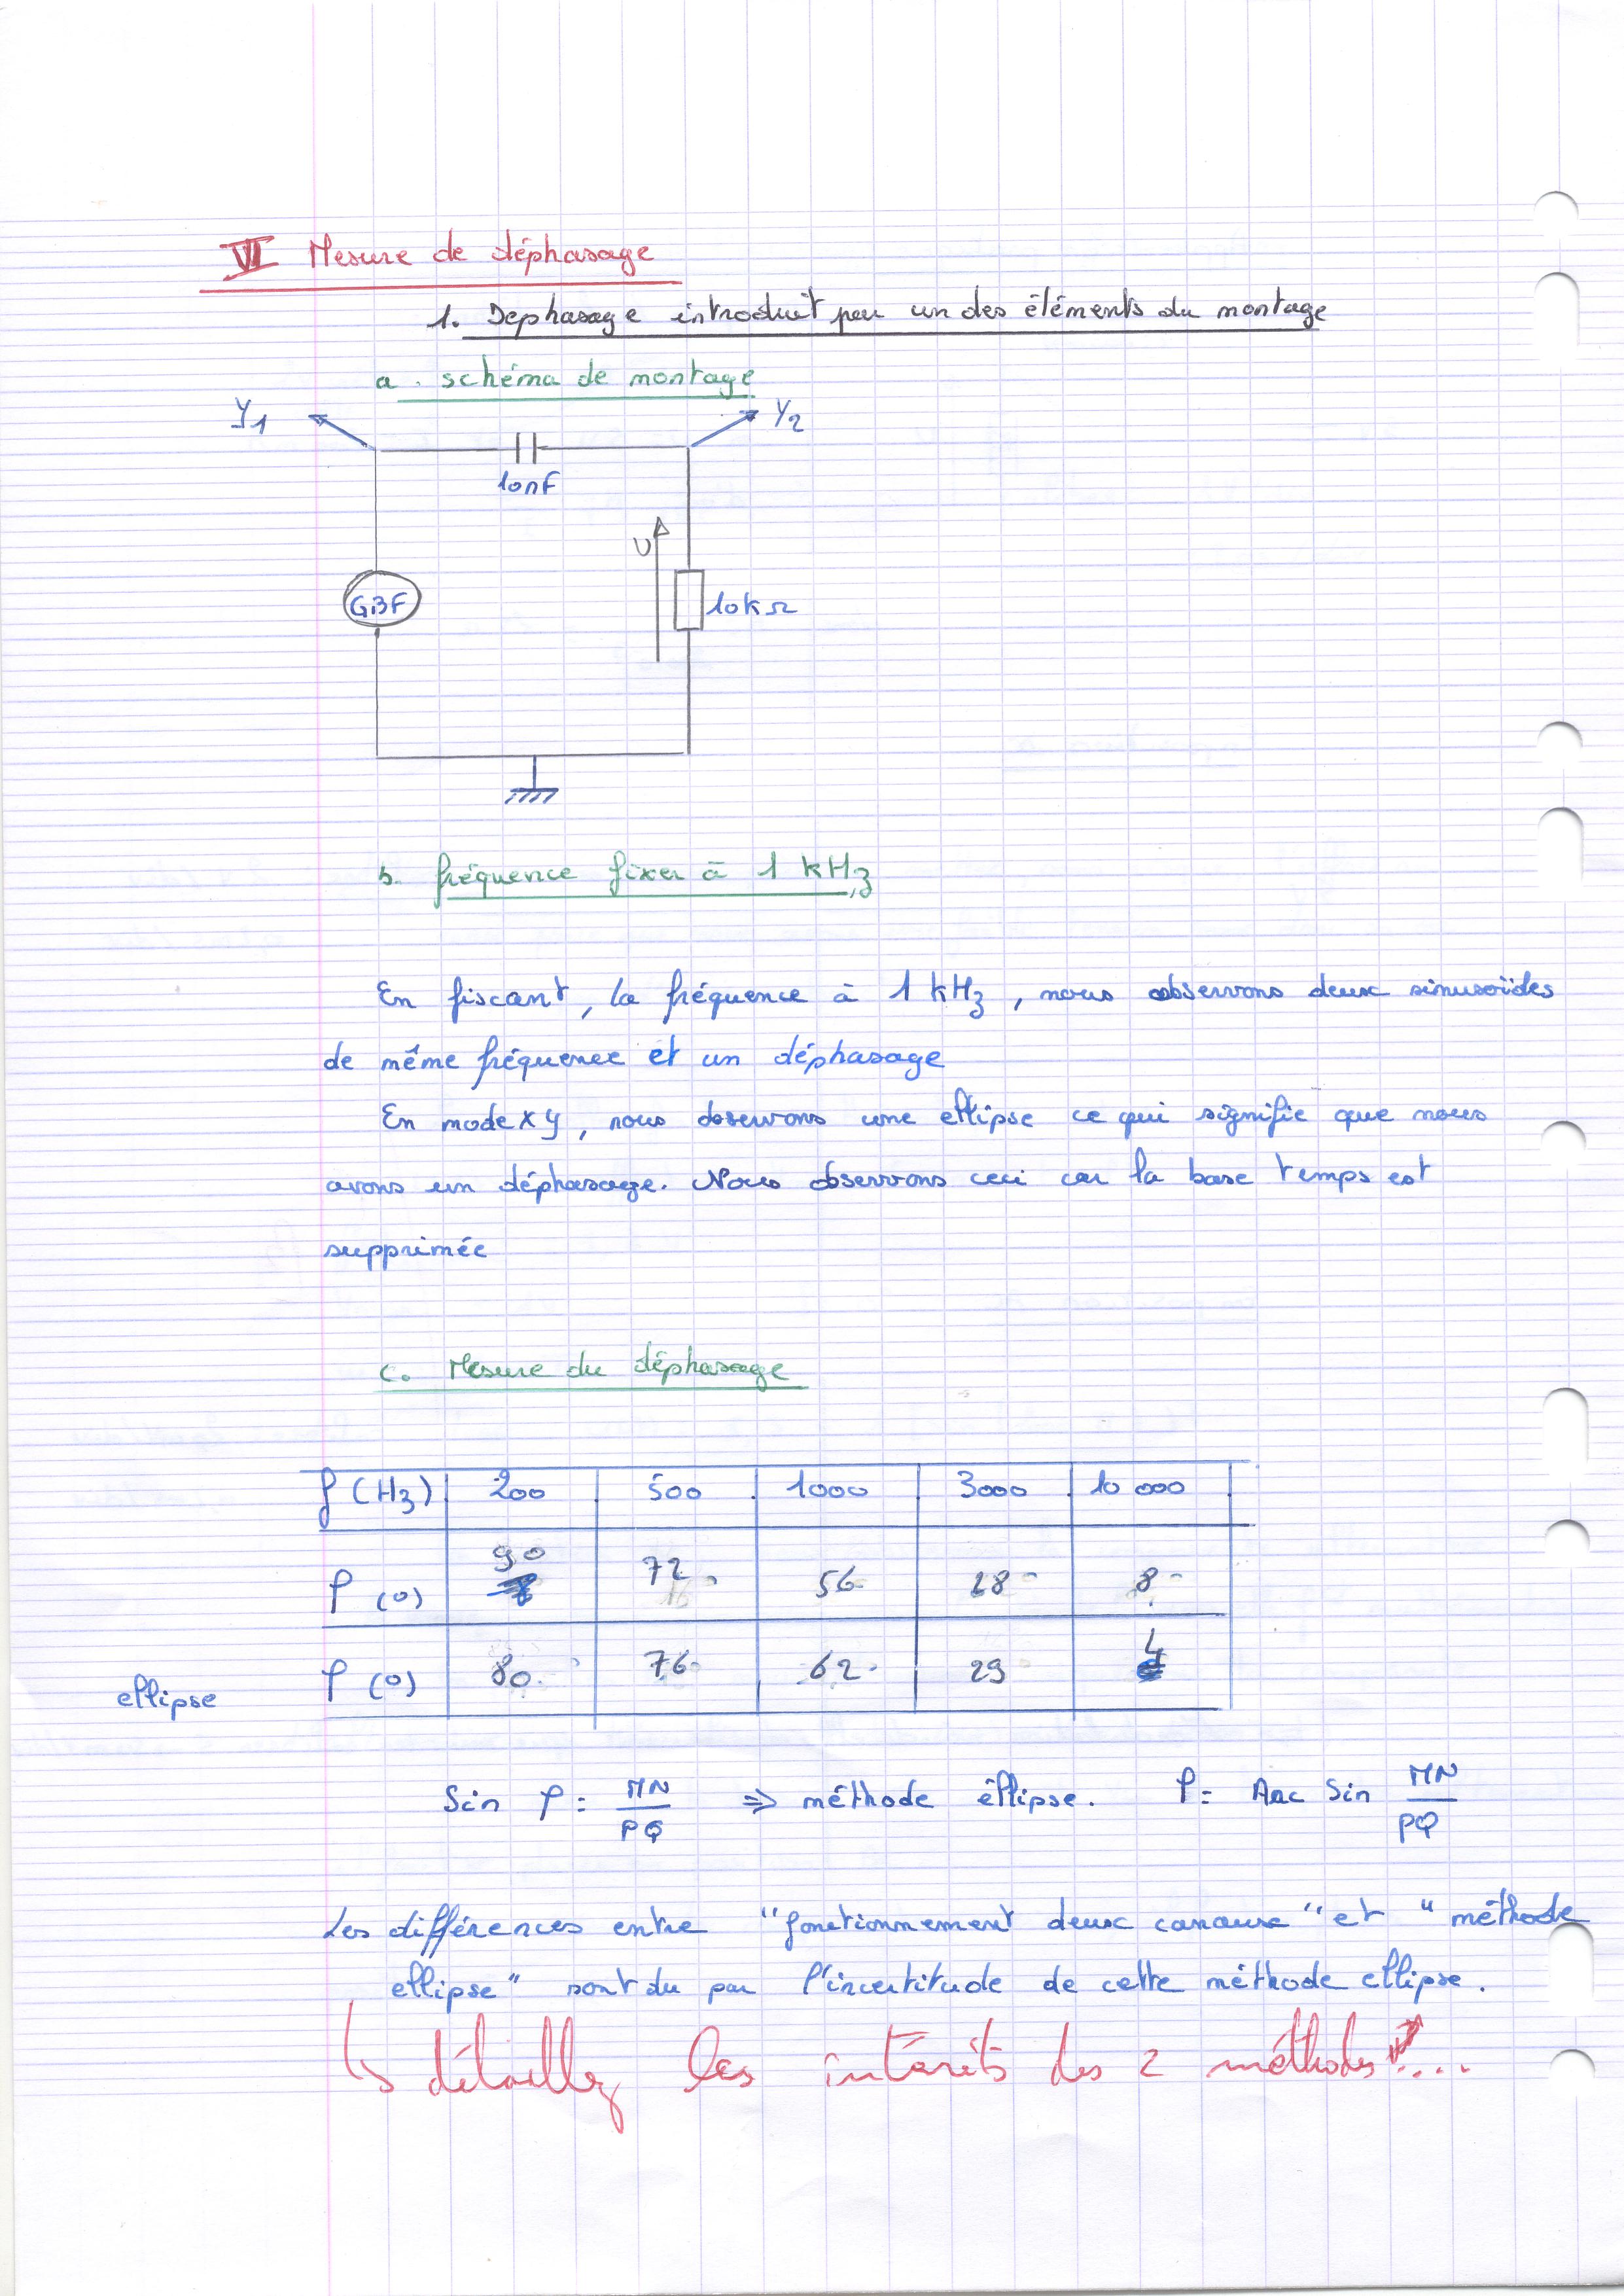 VI Mesure de déphasage
1. Dephasage introduit par un des éléments du montage
a. schéma de montage
Y1
Y2
10nF
U
GBF
10kΩ
b. fréquence fixer à 1 kHz
En fiscant, la fréquence à 1 kHz, nous observons deux sinusoïdes
de même fréquence et un déphasage
En mode xy, nous observons une ellipse ce qui signifie que nous
avons un déphasage. Nous observons ceci car la base temps est
supprimée
c. Mesure du déphasage
f (Hz) 200 500 1000 3000 10 000
φ (°) 90 72 56 28 8
ellipse φ (°) 80 76 62 29 4
Sin φ = MN/PQ => méthode ellipse. φ = Arc Sin MN/PQ
Les différences entre "fonctionnement deux canaux" et "méthode
ellipse" sont du par l'incertitude de cette méthode ellipse.
↳ détaillez les intérêts des 2 méthodes ....